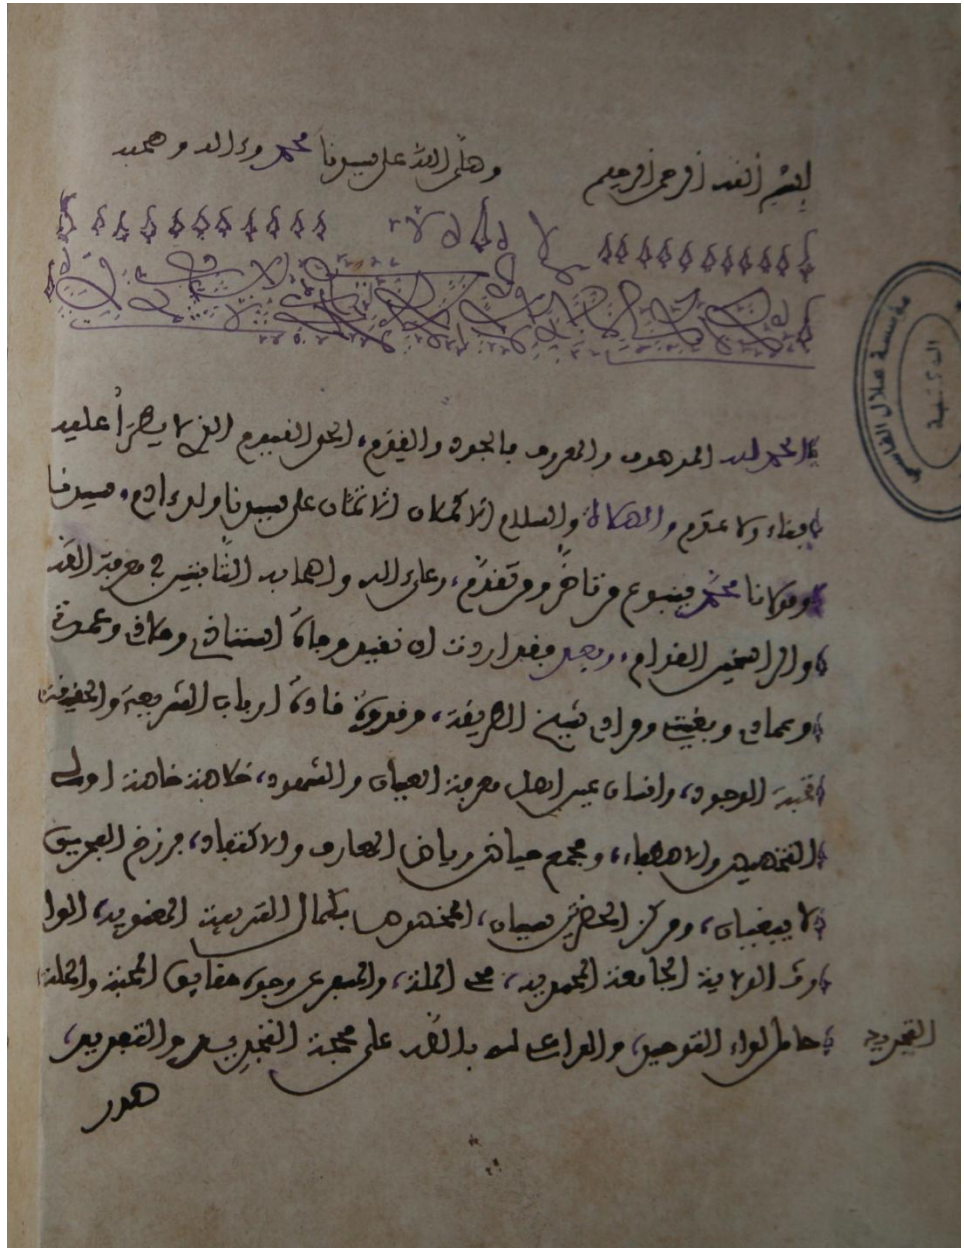 بسم الله الرحمن الرحيم وصلى الله على سيدنا محمد وءاله وصحبه
الحمد لله الموصوف والمعروف بالجود والقدم، الحي القيوم الذي لا يطرأ عليه
فناء ولا عدم والصلاة والسلام الاكملان الاتمان على سيدنا ولد ءادم، سيدنا
ومولانا محمد ينبوع من تأخر ومن تقدم، وعلى ءاله واصحابه الثابتين في معرفة الله
والراسخين القدام، وبعد فقد اردت ان نفيد وفاة استاذي وملاذي وعمدتي
وعمادي وبغيتي ومرادي شيخ الطريقة، وقدوة قادة ارباب الشريعة والحقيقة،
نخبة الوجود، وانسان عين اهل معرفة العيان والشهود، خلاصة خاصة اولي
التخصيص والاصطفاء، ومجمع حياض رياض المعارف والاكتفاء، برزخ البحرين
لا يبغيان، ومركز الحضرتين سيان، المخصوص بكمال التربية المعنوية، الوا
رث الولاية الجامعة المحمدية، محي الملة، والمسفر عن وجوه حقايق المحبة والخلة
حامل لواء التوحيد، والداعي لله بالله على محجة التجريد والتفريد،
التجريد
صدر
مؤسسة علال الفاسي